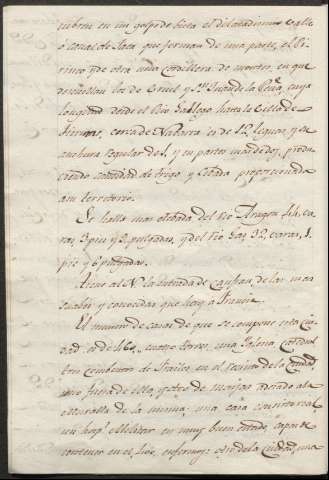 cubren en un golpe de vista el dilatadisimo Valle
ó Canal de Jaca que forman de una parte, el Pi-
rineo, y de otra una Cordillera de montes, en que
descuellan los de Oruel y Sn. Juan de la Peña, cuya
longitud desde el Rio Gallego hasta la Villa de
Tiermas, cerca de Navarra es de 12 leguas, y su
anchura regular de 1, y en partes mas de dos; produ
ciendo cantidad de trigo y Cebada proporcionada
a su territorio.
Se halla mas elevada del Rio Aragon
varas 3 pies y 8 pulgadas, y del Rio Gas 32, varas, 1
pie y 6 pulgadas.
Tiene al N. la entrada de Canfran, de las mas
usuales y conocidas que hay a Francia.
El numero de casas de que se compone esta Ciu
dad, es de 460, cuatro torres, una Iglesia Catedral
tres Conventos de Frailes, en el recinto de la Ciudad,
uno fuera de ella, y otro de monjas
a la muralla de la misma: una casa
un hospl. Militar en muy buen estado, capaz de
contener en el, enfermos: otro de la Ciudad, una